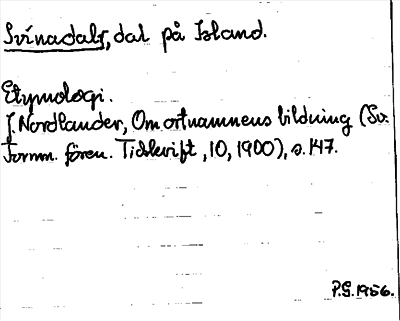 Svínadalr, dal på Island.
Etymologi.
J. Nordlander, Om ortnamnens bildning (Sv.
fornm. fören. Tidskrift, 10, 1900), s. 147.
P.G. 1956.